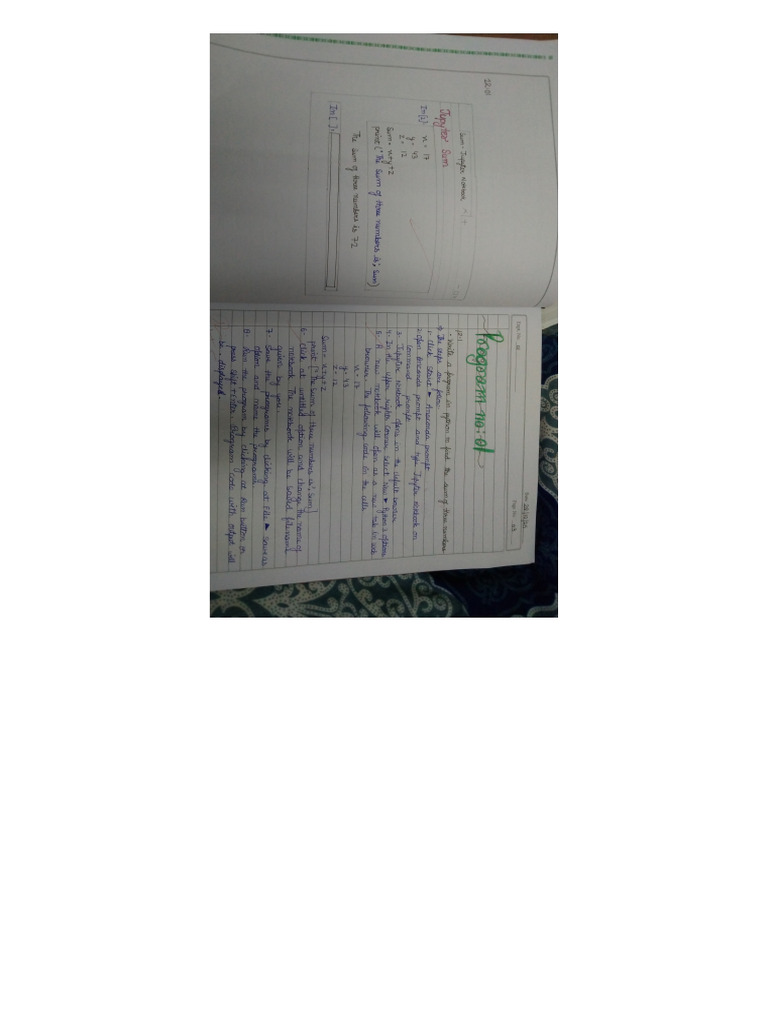 12.01
Sum - Jupyter Notebook
Jupyter Sum
In [2]: x = 17
y = 43
z = 12
Sum = x+y+z
print ("The Sum of three numbers is", Sum)
The Sum of three numbers is 72
In [ ]:
Date
Page No.
Program no: 01
- Write a program in python to find the sum of three numbers
The steps are
1- Click start ► Anaconda prompt
2- Open Anaconda prompt and type Jupyter notebook on
command prompt
3- Jupyter notebook opens in the default browser
4- In the upper right corner select New ► Python 3 option
5- A new notebook will open as a new tab in web
browser. The following code in the cells
x = 17
y = 43
z = 12
Sum = x+y+z
print ("The Sum of three numbers is", Sum)
6- Click at untitled option and change the name of
notebook. The notebook will be saved filename
given by you.
7- Save the programs by clicking at File ► Save as
option and name the program.
8- Run the program by clicking at Run button or
press Shift + Enter. Program code with output will
be displayed.